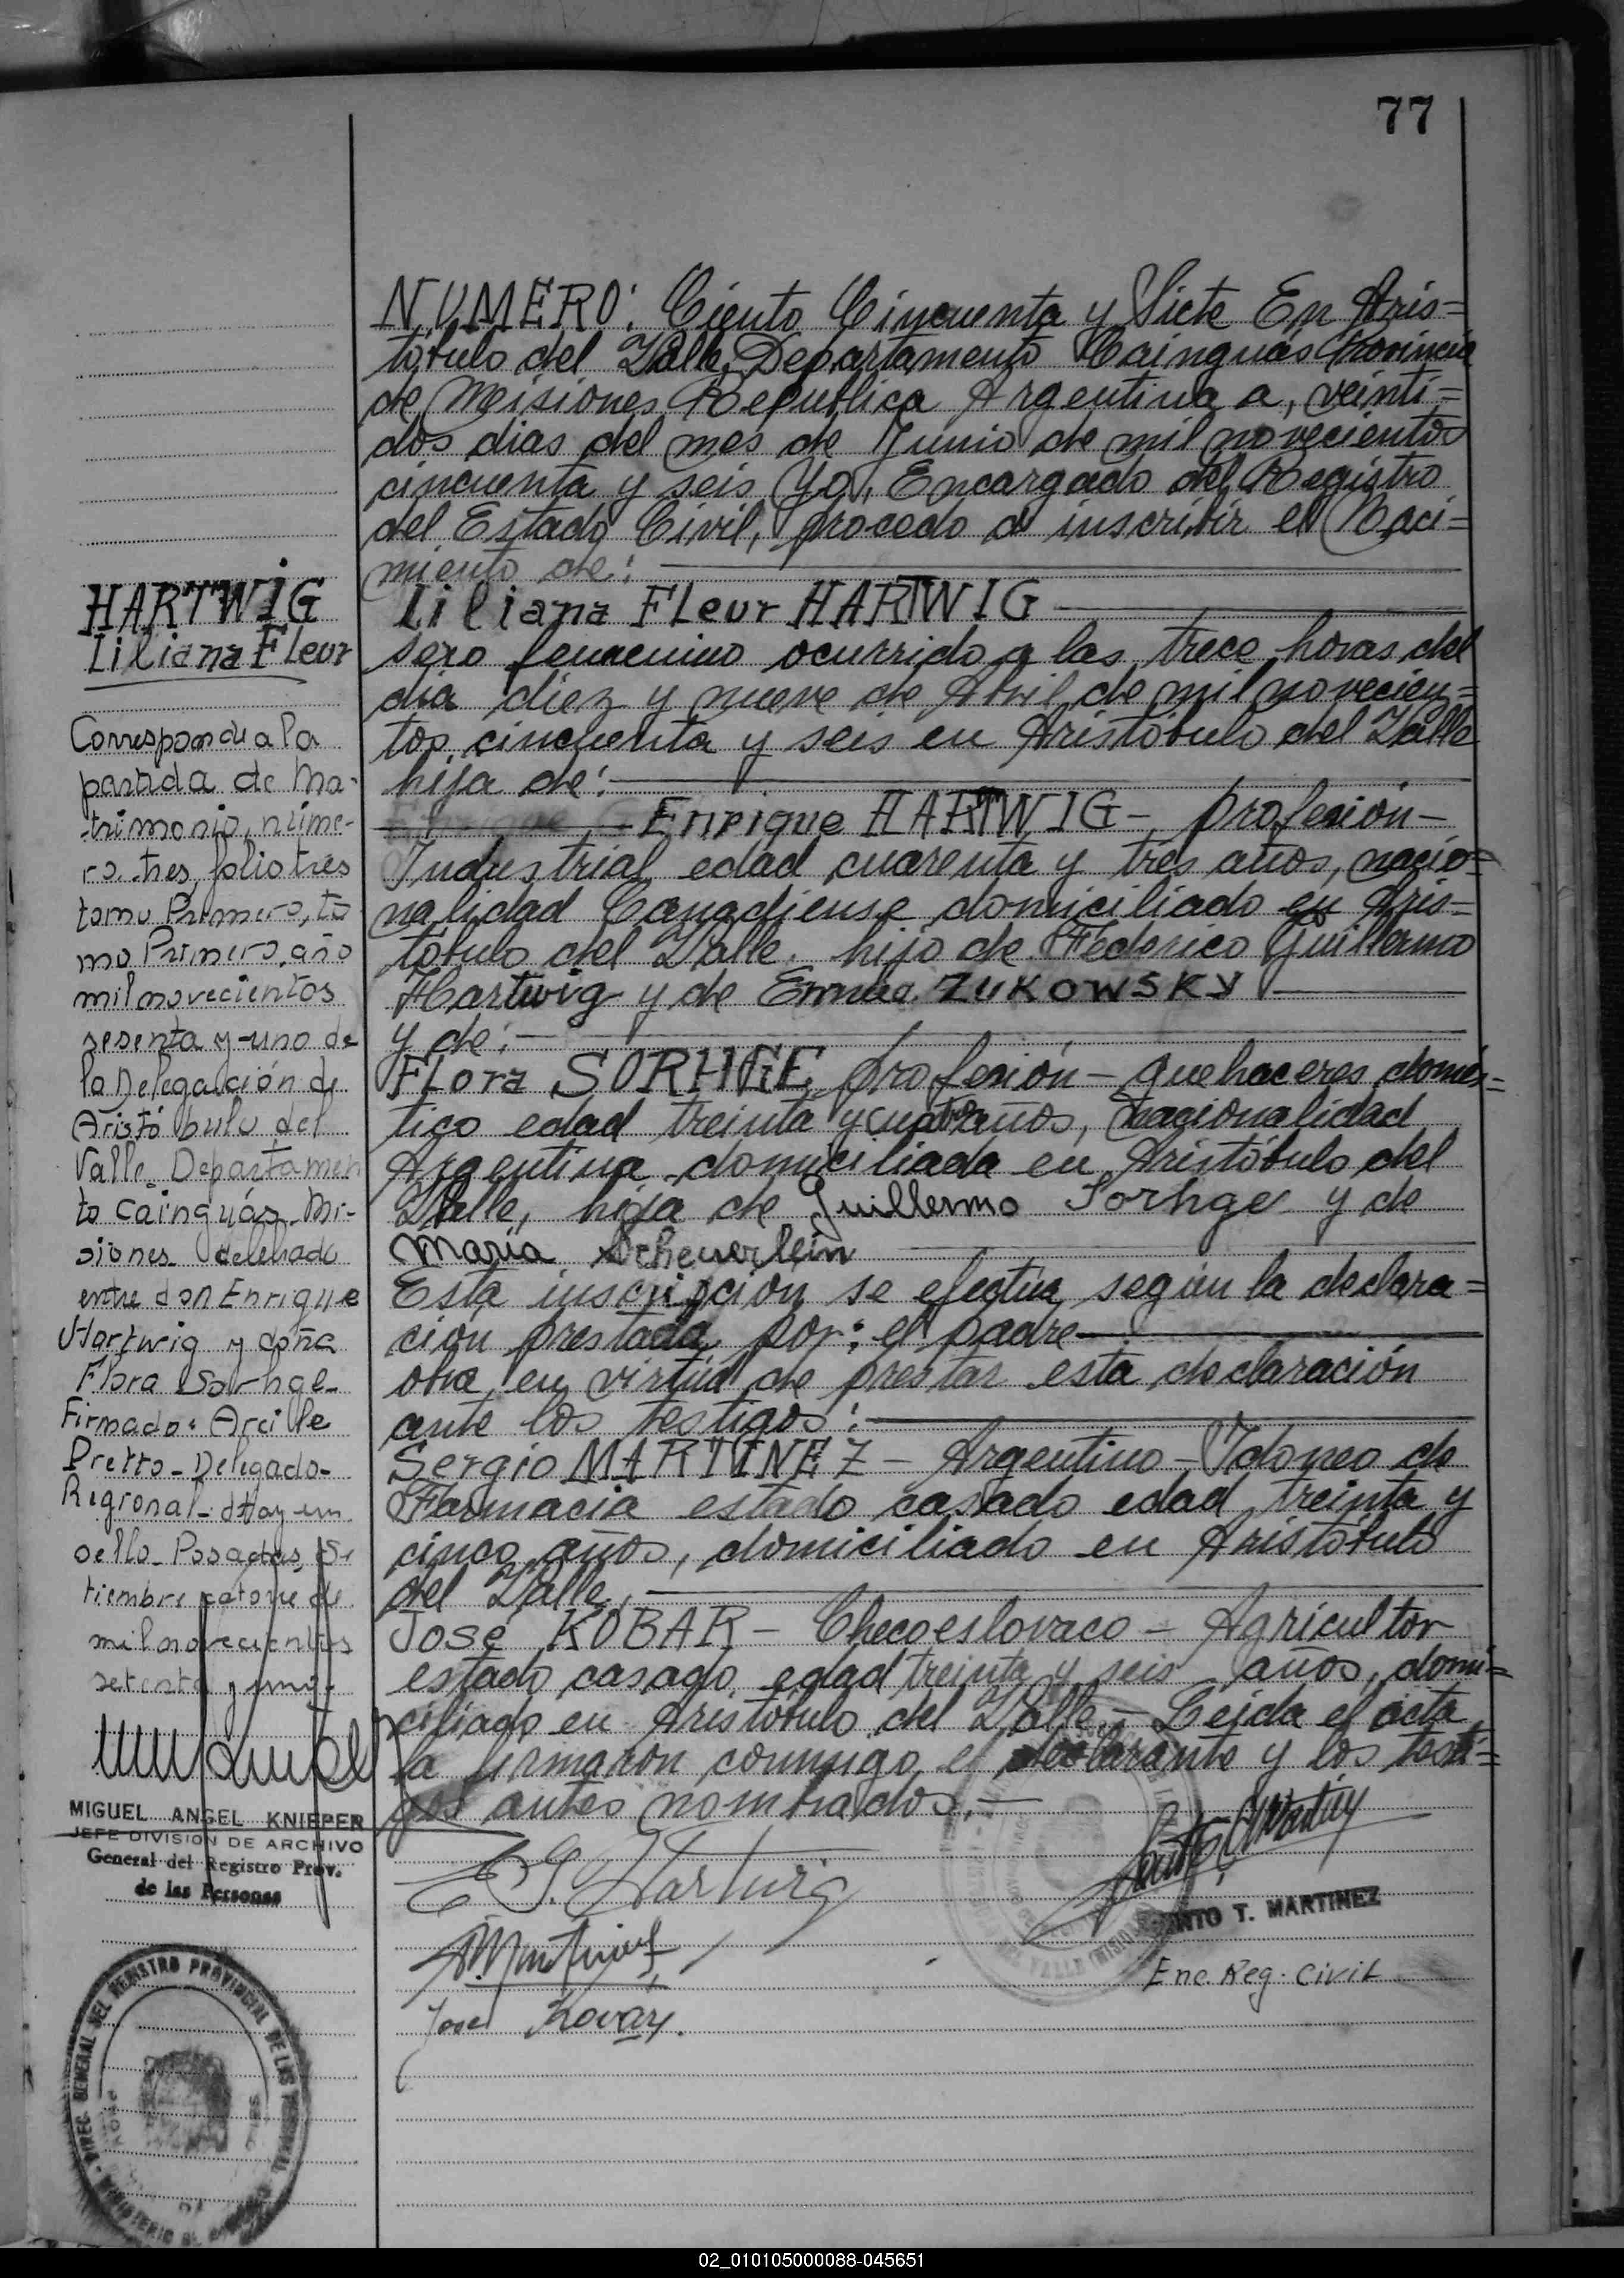 77
NUMERO: Ciento Cincuenta y Siete En Aris=
tóbulo del Valle, Departamento Cainguás Provincia
de Misiones, Republica Argentina a, veinti=
dos dias del mes de Junio de mil novecientos
cincuenta y seis, Yo, Encargado del Registro
del Estado Civil, procedo a inscribir el Naci=
miento de:
Liliana Fleur HARTWIG
sexo femenino ocurrido a las trece horas del
dia diez y nueve de Abril de mil novecien=
tos cincuenta y seis en Aristóbulo del Valle
hija de:
Enrique HARTWIG-, profesión-
Industrial edad cuarenta y tres años, nacio=
nalidad Canadiense domiciliado en Aris=
tóbulo del Valle, hijo de Federico Guillermo
Hartwig y de Emma ZUKOWSKY
y de:
Flora SORHGE, profesión- quehaceres domés=
tico edad treinta y cuatro años, nacionalidad
Argentina domiciliada en Aristóbulo del
Valle, hija de Guillermo Sorhge y de
Maria Scheuerlein
Esta inscripción se efectúa según la declara=
ción prestada por: el padre
obra en virtud de prestar esta declaración
ante los testigos:
Sergio MARTINEZ- Argentino- Idoneo de
Farmacia estado casado edad treinta y
cinco años, domiciliado en Aristóbulo
del Valle,
José KOBAR- Checoeslovaco- Agricultor
estado casado edad treinta y seis años, domi=
ciliado en Aristóbulo del Valle.- Leida el acta
la firmaron conmigo, el declarante y los testi=
gos antes nombrados.-
E G. Hartwig
S. Martinez
José Kovár.
NTO T. MARTINEZ
Enc. Reg. Civil
HARTWIG
Liliana Fleur
Corresponde a la
partida de Ma-
trimonio, núme-
ro tres, folio tres
tomo Primero, to
mo Primero, año
mil novecientos
sesenta y uno de
la Delegación de
Aristóbulo del
Valle Departamen
to Cainguás- Mi-
siones celebrado
entre don Enrique
Hartwig y doña
Flora Sorhge-
Firmado: Arcille
Pretto- Delegado-
Regional- Hay un
sello- Posadas, Se
tiembre catorce de
mil novecientos
setenta y uno.
MIGUEL ANGEL KNIEPER
JEFE DIVISION DE ARCHIVO
General del Registro Prov.
de las Personas
DIREC. GENERAL DEL REGISTRO PROVINCIAL DE LAS PERSONAS
02_010105000088-045651